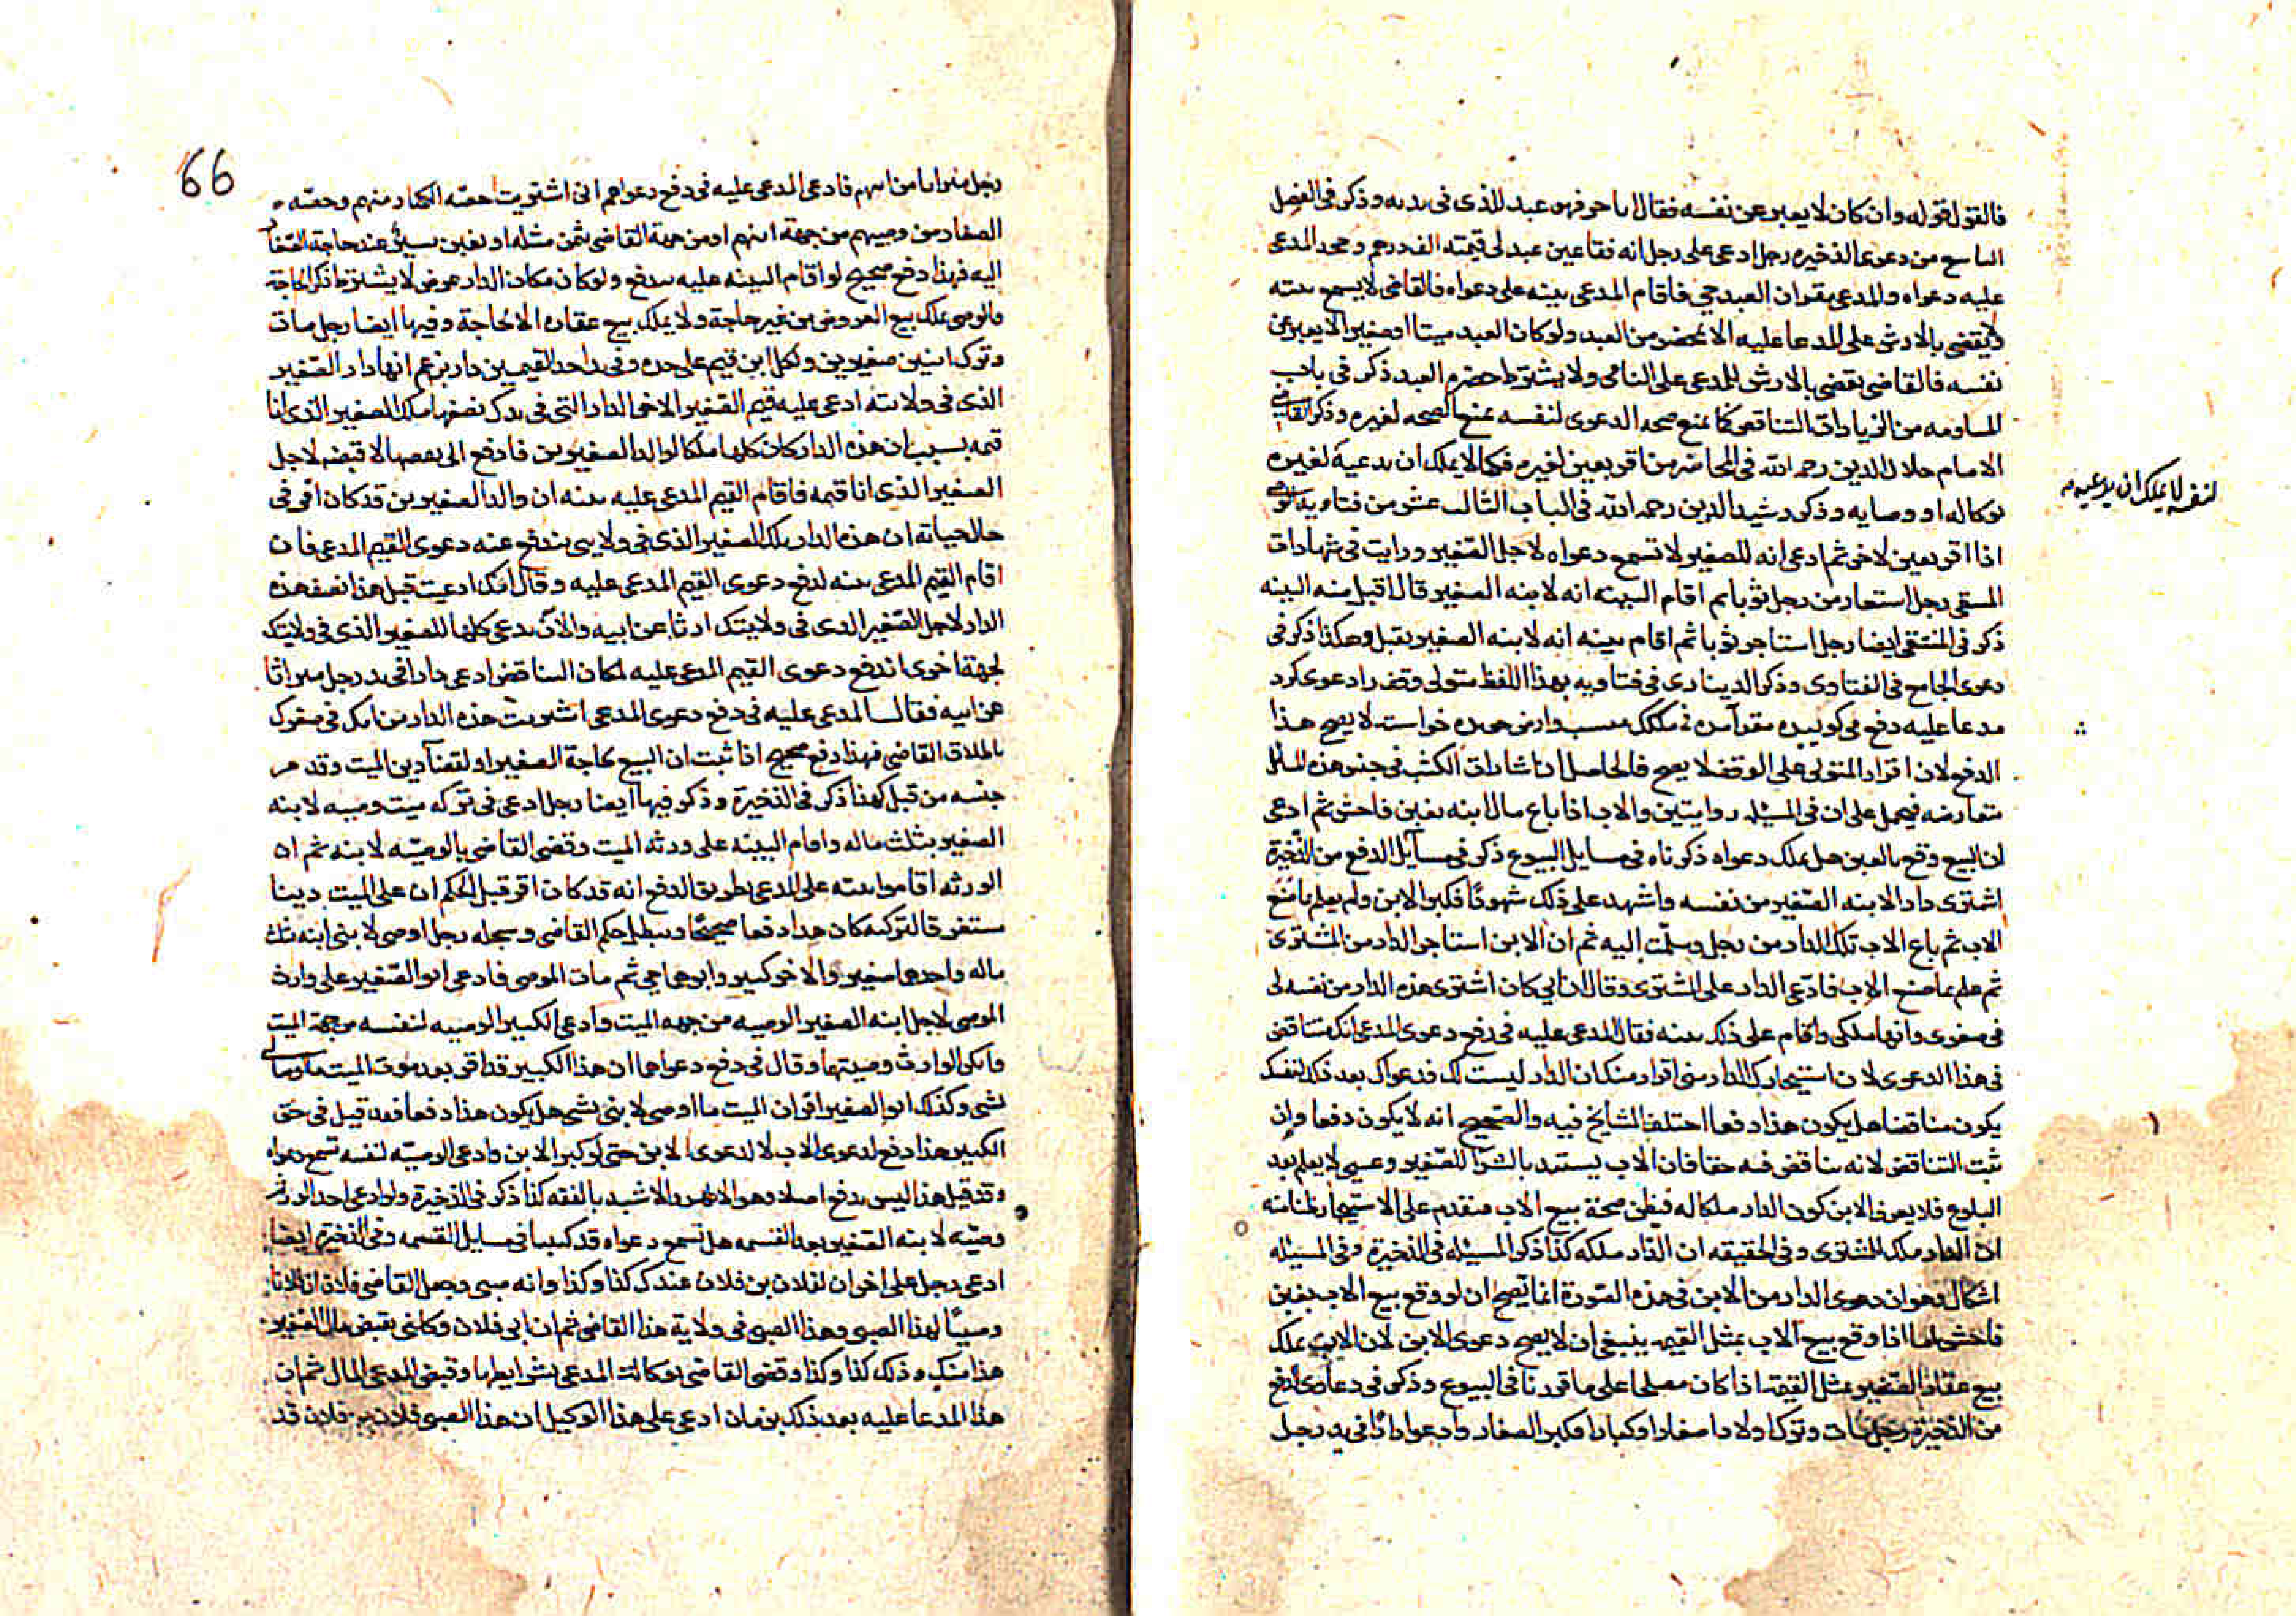 فالقول قوله وان كان لا يعبر عن نفسه فقال انا حر فهو عبد للذى فى يده وذكر فى الفصل
التاسع من دعوى الذخيره رجل ادعى على رجل انه فقا عين عبد لى قيمته الف درهم وجحد المدعى
عليه دعواه والمدعى يقر ان العبد حي فاقام المدعى بينه على دعواه فالقاضى لا يسمع بينته
ولا يقضى بالارش على المدعا عليه الا بمحضر من العبد ولو كان العبد ميتا او صغيرا لا يعبر عن
نفسه فالقاضى يقضى بالارش للمدعى على ولا يشترط حضره العبد ذكر فى باب
المساومه من الزيادات التناقض كما يمنع صحه الدعوى لنفسه يمنع الصحه لغيره وذكر القاضى
الامام جلال الدين رحمه الله فى المحاضر من اقر بعين لغيره فكما لا يملك ان يدعيه لغيره
لنفسه لا يملك ان يدعيه
بوكاله او وصايه وذكر رشيد الدين رحمه الله فى الباب الثالث عشر من فتاويه
اذا اقر بعين لاخر ثم ادعى انه للصغير لا تسمع دعواه لاجل الصغير ورايت فى شهادات
المنتقى رجل استعار من رجل ثوبا ثم اقام البينه انه لابنه الصغير قال اقبل منه البينه
ذكر فى المنتقى ايضا رجل استاجر ثوبا ثم اقام بينه انه لابنه الصغير يقبل وهكذا ذكر فى
دعوى الجامع فى الفتاوى وذكر الدينارى فى فتاويه بهذا اللفظ متولى وقف را دعوى كرد
مدعا عليه دفع مى كويد خواست لا يصح هذا
الدفع لان اقرار المتولى على الوقف لا يصح فالحاصل ان اشارات الكتب فى جنس هذه المسائل
متعارضه فيحمل على ان فى المسئله روايتين والاب اذا باع مال ابنه بغبن فاحش ثم ادعى
ان البيع وقع بالغبن هل يملك دعواه ذكرناه فى مسايل البيوع ذكر فى مسآيل الدفع من الذخيرة
اشترى دارا لابنه الصغير من نفسه واشهد على ذلك شهودًا فكبر الابن ولم يعلم بما صنع
الاب ثم باع الاب تلك الدار من رجل وسلمت اليه ثم ان الابن استاجر الدار من المشترى
ثم علم بما صنع الاب فادعى الدار على المشترى وقال ان ابى كان اشترى هذه الدار من نفسه لى
فى صغرى وانها ملكى واقام على ذلك بينه فقال المدعى عليه فى دفع دعوى المدعى انك متناقض
فى هذا الدعوى لان استيجارك الدار منى اقرار منك ان الدار ليست لك فدعواك بعد ذلك لنفسك
يكون مناقضا هل يكون هذا دفعا اختلف المشايخ فيه والصحيح انه لا يكون دفعا وان
ثبت التناقض لانه تناقض فيه خفا فان الاب يستبد بالشرآ للصغير وعسى لا يعلم بعد
البلوغ فلا يعرف الابن كون الدار ملكا له فيظن صحة بيع الاب فيقدم على الاستيجار
ان الدار ملك المشترى وفى الحقيقه ان الدار ملكه كذا ذكر المسئله فى الذخيرة وفى المسئله
اشكال وهو ان دعوى الدار من الابن فى هذه الصورة انما تصح ان لو وقع بيع الاب بغبن
فاحش اما اذا وقع بيع الاب بمثل القيمه ينبغى ان لا يصح دعوى الابن لان الاب يملك
بيع عقار الصغير بمثل القيمة اذا كان مصلحا على ما قررنا فى البيوع وذكر فى دعاوى الدفع
من الذخيرة رجل مات وترك اولادا صغارا وكبارا فكبر الصغار وادعوا دارا فى يد رجل
66
رجل ميراثا من ابيهم فادعى المدعى عليه فى دفع دعواهم انى اشتريت حصه الكبار منهم وحصه
الصغار من وصيهم من جهة ابيهم او من جهة القاضى بثمن مثله او بغبن يسير عند حاجة الصغار
اليه فهذا دفع صحيح لو اقام البينه عليه يندفع ولو كان مكان الدار عرض لا يشترط ذكر الحاجة
فالوصى يملك بيع العروض من غير حاجة ولا يملك بيع عقاره الا لحاجة وفيها ايضا رجل مات
وترك ابنين صغيرين ولكل ابن قيم على حده وفى يد احد القيمين دار يزعم انها دار الصغير
الذى فى ولايته ادعى عليه قيم الصغير الاخر الدار التى فى يدك نصفها ملك للصغير الذى انا
قيمه بسبب ان هذه الدار كان كلها ملكا لوالد الصغيرين فادفع الى نصفها لاقبضه لاجل
الصغير الذى انا قيمه فاقام القيم المدعى عليه بينه ان والد الصغيرين قد كان اقر فى
حال حياته ان هذه الدار ملك للصغير الذى فى ولايتى يندفع عنه دعوى القيم المدعى فان
اقام القيم المدعى بينه لدفع دعوى القيم المدعى عليه وقال انك ادعيت قبل هذا نصف هذه
الدار لاجل الصغير الذى فى ولايتك ارثا عن ابيه والآن تدعى كلها للصغير الذى فى ولايتك
لجهة اخرى اندفع دعوى القيم المدعى عليه لمكان التناقض ادعى دارا فى يد رجل ميراثا
عن ابيه فقال المدعى عليه فى دفع دعوى المدعى اشتريت هذه الدار من امك فى صغرك
باطلاق القاضى فهذا دفع صحيح اذا ثبت ان البيع لحاجة الصغير او لقضآ دين الميت وقد مر
جنسه من قبل كهذا ذكر فى الذخيرة وذكر فيها ايضا رجل ادعى فى تركه ميت وصيه لابنه
الصغير بثلث ماله واقام البينه على ورثه الميت وقضى القاضى بالوصيه لابنه ثم ان
الورثه اقاموا بينه على المدعى بطريق الدفع انه قد كان اقر قبل الحكم ان على الميت دينا
مستغرقا لتركته كان هذا دفعا صحيحًا ويبطل حكم القاضى وسجله رجل اوصى لابنى ابنه بثلث
ماله واحدهما صغير والاخر كبير وابوهما حي ثم مات الموصى فادعى ابو الصغير على وارث
الموصى لاجل ابنه الصغير الوصيه من جهه الميت وادعى الكبير الوصيه لنفسه من جهة الميت
وانكر الوارث وصيتهما وقال فى دفع دعواهما ان هذا الكبير قد اقر بعد موت الميت ما اوصى لى
بشى وكذلك ابو الصغير اقر ان الميت ما اوصى لابنى بشى هل يكون هذا دفعا فقد قيل فى حق
الكبير هذا دفع لدعوى الاب لا لدعوى الابن حتى لو كبر الابن وادعى الوصيه لنفسه تسمع دعواه
وقد قيل هذا ليس بدفع اصلا وهو الاظهر والاشبه بالفقه كذا ذكر فى الذخيرة ولو ادعى احد الورثه
وصيه لابنه الصغير بعد القسمه هل تسمع دعواه قد كتبنا فى مسايل القسمه وفى الذخيرة ايضا
ادعى رجل على اخر ان لفلان بن فلان عندك كذا وكذا وانه صبى وجعل القاضى فلان
وصيًا لهذا الصبى وهذا الصبى فى ولاية هذا القاضى ثم ان ابى فلان وكلنى بقبض مال الصغير
هذا منك وذلك كذا وكذا وقضى القاضى بوكالة المدعى بشرايطها وقبض المدعى المال ثم ان
هذا المدعا عليه بعد ذلك بزمان ادعى على هذا الوكيل ان هذا الصبى فلان بن فلان قد